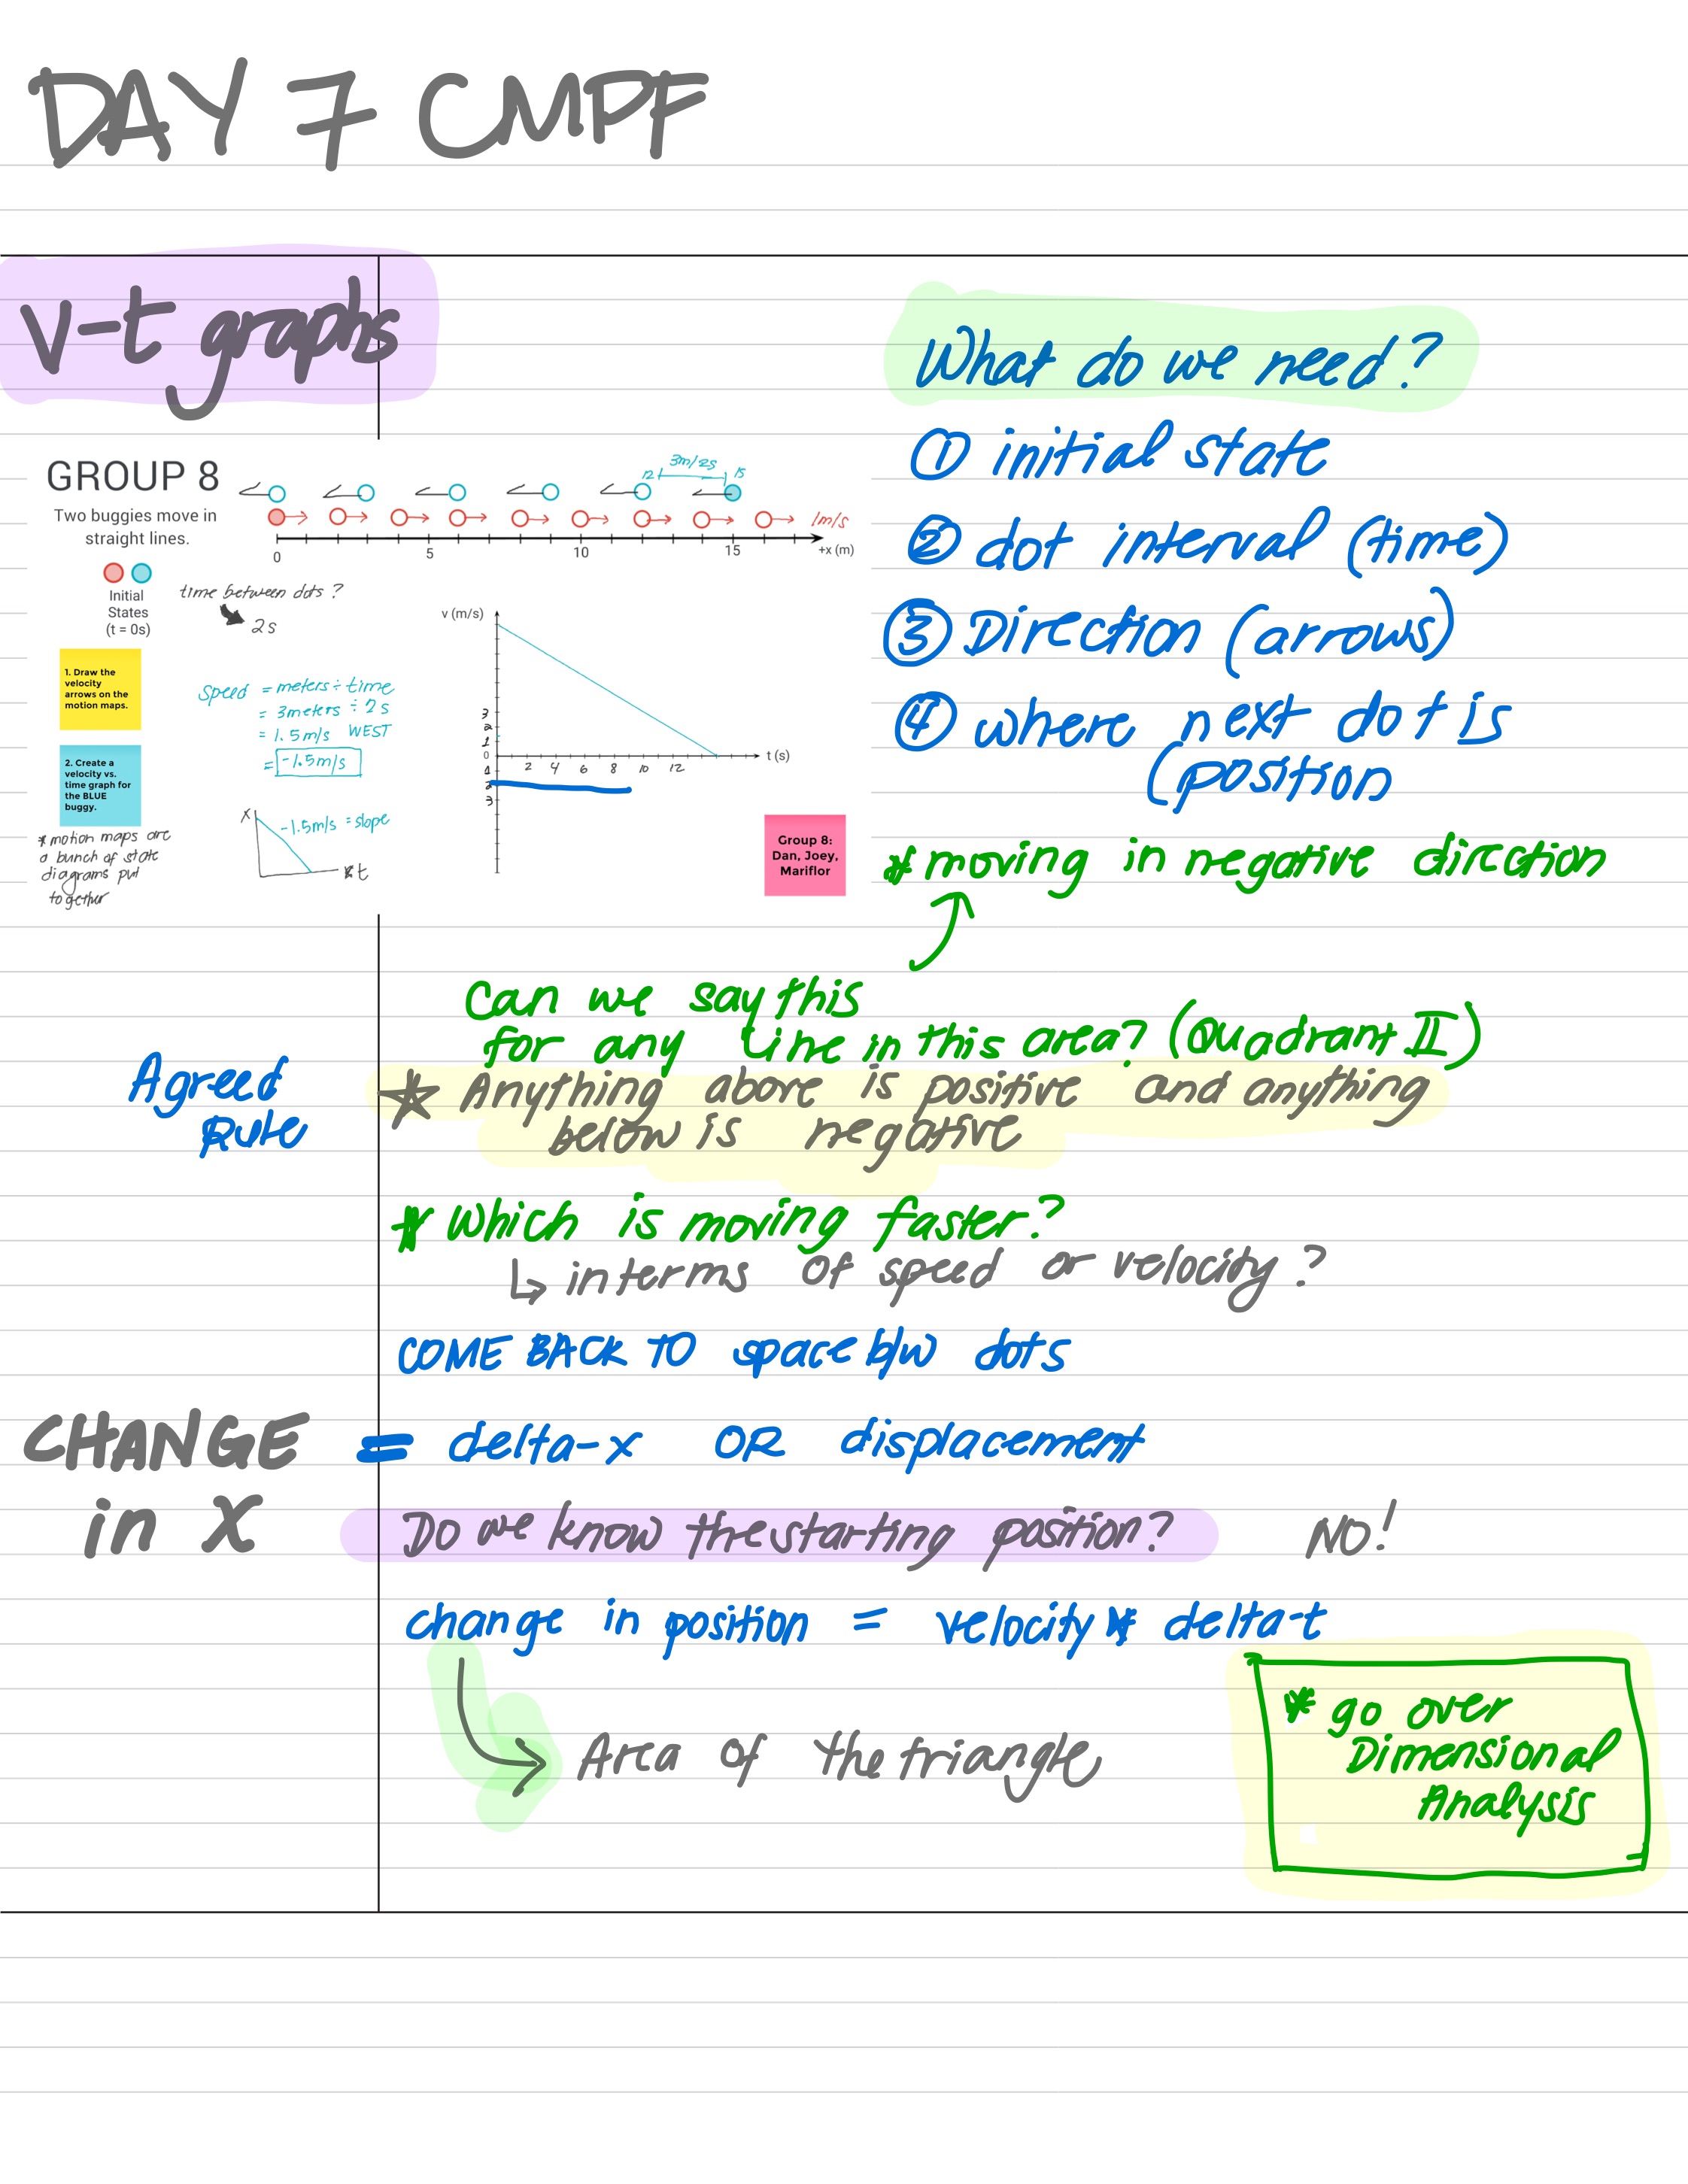 DAY 7 CMPF
V-t graphs
What do we need?
① initial state
② dot interval (time)
③ Direction (arrows)
④ where next dot is
(position
* moving in negative direction
GROUP 8
Two buggies move in
straight lines.
Initial
States
(t = 0s)
3m/2s
12 15
1m/s
0 5 10 15 +x (m)
time between dots?
2s
1. Draw the
velocity
arrows on the
motion maps.
2. Create a
velocity vs.
time graph for
the BLUE
buggy.
speed = meters ÷ time
= 3meters ÷ 2s
= 1.5m/s WEST
= -1.5m/s
x
-1.5m/s = slope
t
* motion maps are
a bunch of state
diagrams put
together
v (m/s)
3
2
1
0
2 4 6 8 10 12
t (s)
1
2
3
Group 8:
Dan, Joey,
Mariflor
Can we say this
for any line in this area? (Quadrant II)
Agreed
Rule
* Anything above is positive and anything
below is negative
* Which is moving faster?
↳ in terms of speed or velocity?
COME BACK TO space b/w dots
CHANGE
in X
= delta-x OR displacement
Do we know the starting position? NO!
change in position = velocity * delta-t
Area of the triangle
* go over
Dimensional
Analysis